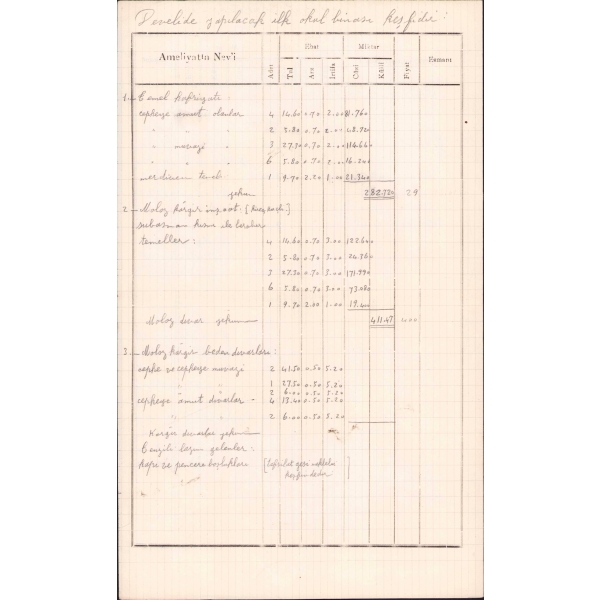 Develide yapılacak ilk okul binası keşfidir:
Ameliyatın Nev'i Adet Ebat Miktar Fiyat Esmanı
Tul Arz İrtifa Cüzi Külli
1.- Temel hafriyatı:
cepheye amut olanlar 4 14.60 0.70 2.00 81.760
" " " 2 5.80 0.70 2.00
" muvazi " 3 27.30 0.70 2.00 114.660
" " " 6 5.80 0.70 2.00
merdiven temeli 1 9.70 2.20 1.00 21.340
yekun 282.720 29
2.- Moloz kârgir inşaat:
subasman kısmı ile beraber
temeller: 4 14.60 0.70 3.00
2 5.80 0.70 3.00 24.360
3 27.30 0.70 3.00 171.990
6 5.80 0.70 3.00
1 9.70 2.00 1.00 19.400
Moloz duvar yekunu 411.47
3.- Moloz kârgir beden duvarları:
cephe ve cepheye muvazi 2 41.50 0.50 5.20
1 27.50 0.50 5.20
2 6.00 0.50 5.20
cepheye âmut duvarlar - 4 0.50 5.20
2 6.00 0.50 5.20
Kârgir duvarlar yekunu
Tenzili lazım gelenler:
kapı ve pencere boşlukları